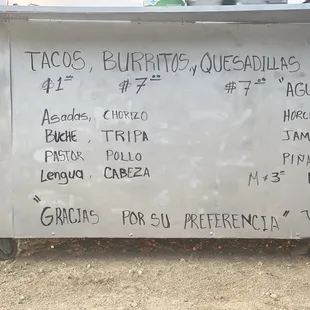 TACOS, BURRITOS, y QUESADILLAS
$1.00 $7.00 $7.00 "AGU
Asadas, CHORIZO HORC
BUCHE, TRIPA JAM
PASTOR POLLO PIÑA
Lengua, CABEZA M $3.00
"GRACIAS POR SU PREFERENCIA"